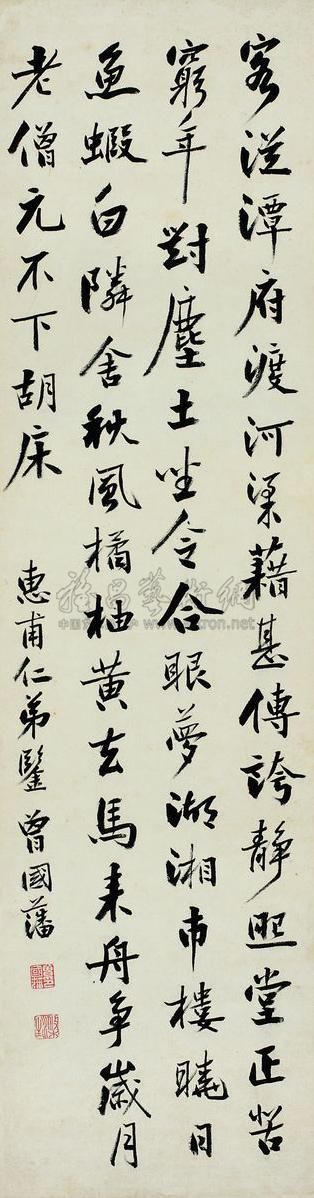 客從潭府渡河梁藉甚傳誇靜照堂正苦
窮年對塵土坐令合眼夢湖湘市樓曉日
魚蝦白隣舍秋風橘柚黃去馬来舟爭歲月
老僧元不下胡床
惠甫仁弟鑒 曾國藩